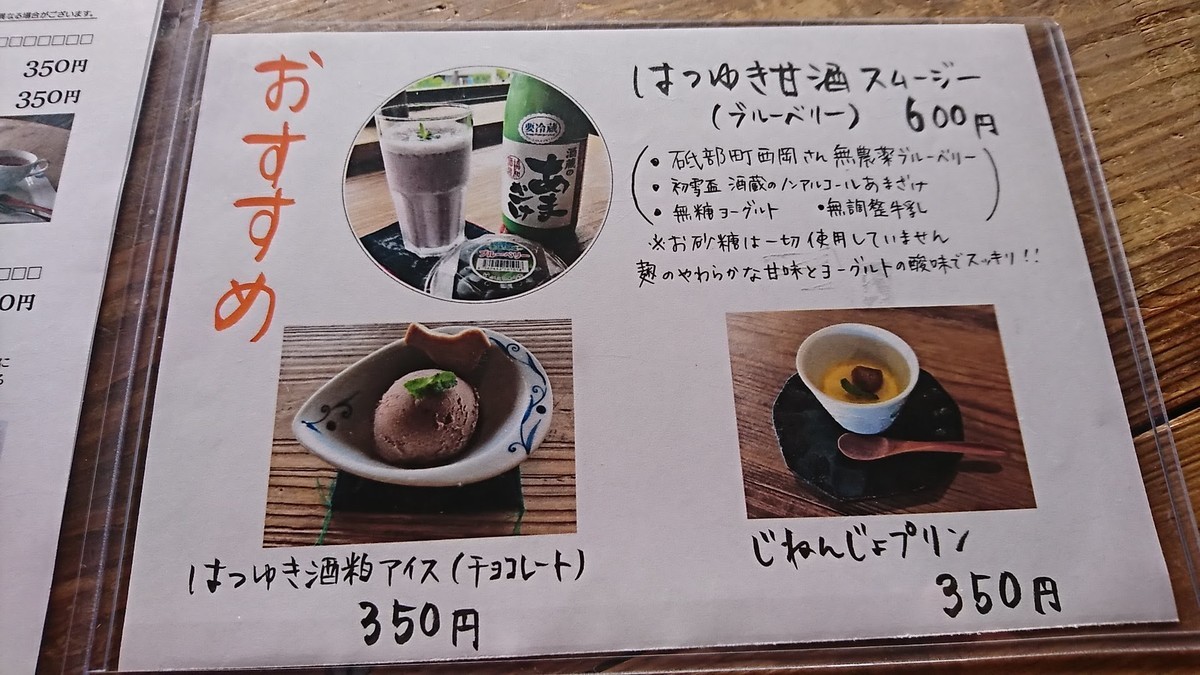 異なる場合がございます。
350円
350円
0円
に
おすすめ
要冷蔵
酒蔵の
あま
ざけ
ブルーベリー
はつゆき甘酒スムージー
(ブルーベリー) 600円
・砥部町西岡さん無農薬ブルーベリー
・初雪盃 酒蔵のノンアルコールあまざけ
・無糖ヨーグルト ・無調整牛乳
※お砂糖は一切使用していません
麹のやわらかな甘味とヨーグルトの酸味でスッキリ!!
はつゆき酒粕アイス(チョコレート)
350円
じねんじょプリン
350円